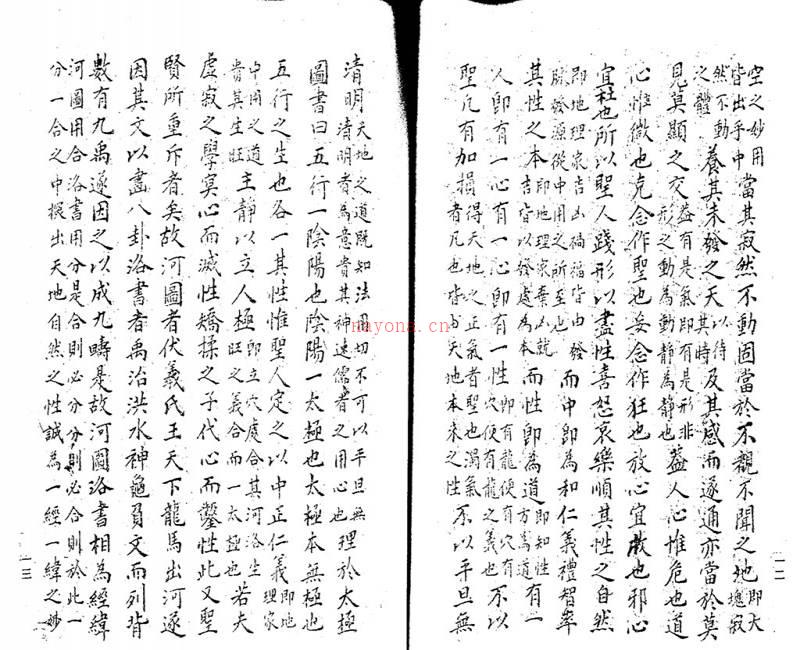 空之妙用皆出乎中當其寂然不動固當於不觀不聞之地即大塊寂
然不動之體養其未發之天以待其時及其感而遂通亦當於莫
見莫顯之交蓋有是氣即有是形非形之動為動靜為靜也蓋人心惟危也道
心惟微也克念作聖也妄念作狂也放心宜散也邪心
宜杜也所以聖人踐形以盡性喜怒哀樂順其性之自然
即地理家吉凶禍福皆由發脉發源從中用之所至也而中即為和仁義禮智率
其性之本即地理家棄凶就吉皆以發處為本而性即為道即知性方為道有一
人即有一心有一心即有一性即有龍便有穴有穴便有龍之義也不以
聖凡有加損得天地之正氣者聖也濁氣者凡也皆為天地本來之性不以平旦無
一二
清明天地之道既知法用切不可以平旦無清明者為意貴其神速儒者之用心也理於太極
圖書曰五行一陰陽也陰陽一太極也太極本無極也
五行之生也各一其性惟聖人定之以中正仁義即地理家
中用之道貴其生旺主靜以立人極即立穴處合其河洛生旺之義合而一太極也若夫
虛寂之學寞心而滅性矯揉之子代心而鑿性此又聖
賢所重斥者矣故河圖者伏羲氏王天下龍馬出河遂
因其文以畫八卦洛書者禹治洪水神龜負文而列背
數有九禹遂因之以成九疇是故河圖洛書相為經緯
河圖用合洛書用分是合則必分分則必合則於此一
分一合之中撰出天地自然之性誠為一經一緯之妙
一三
nayona.cn